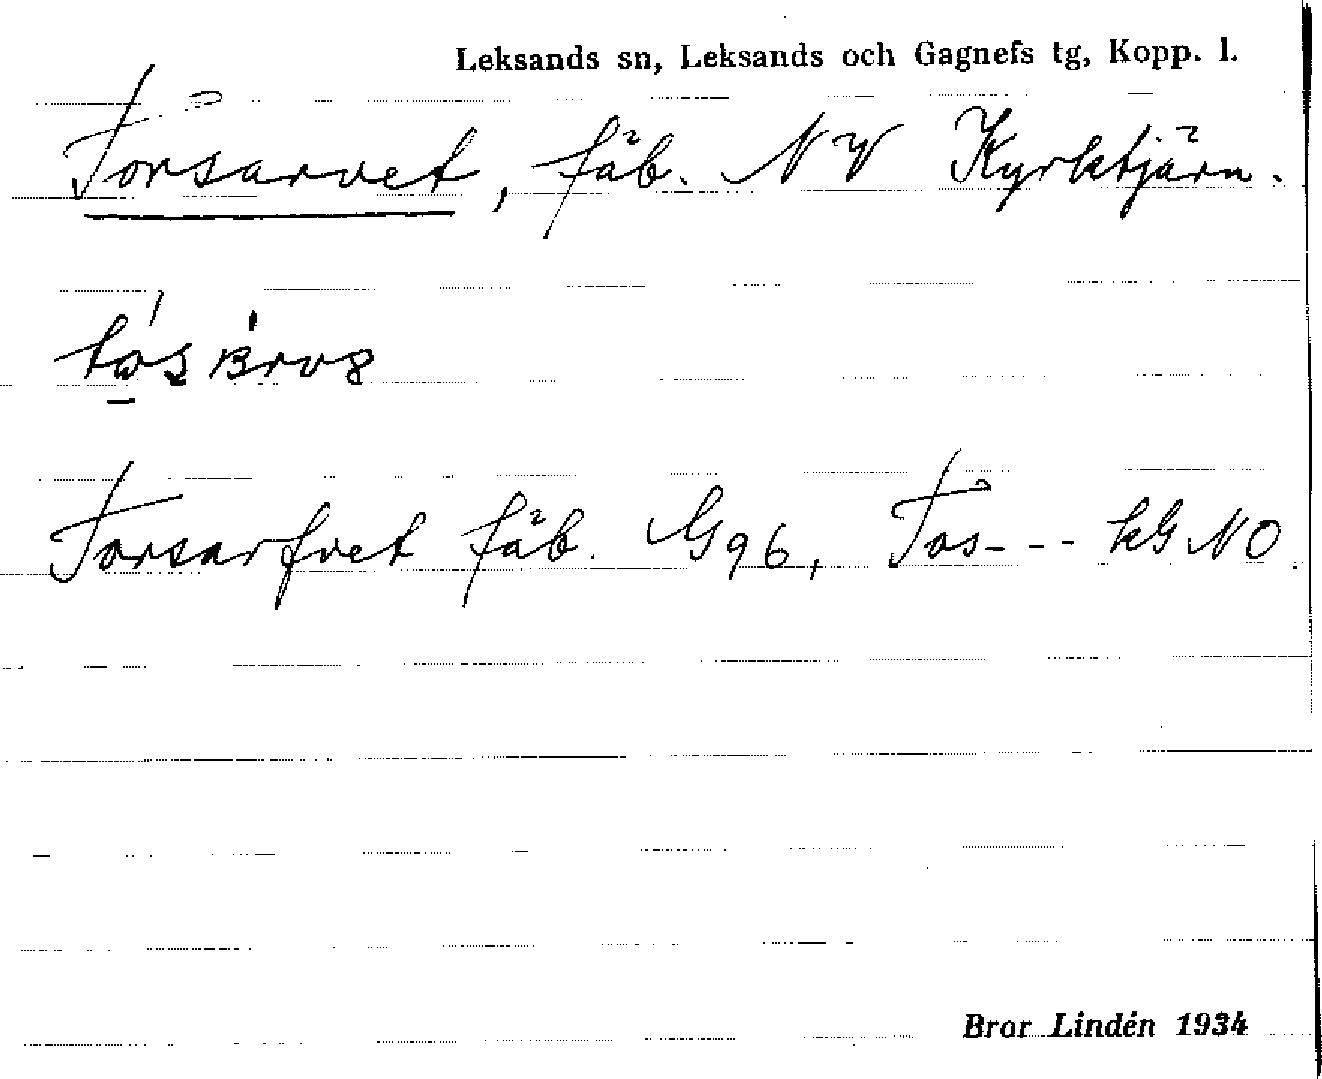 Leksands sn, Leksands och Gagnefs tg, Kopp. l.
Torsarvet, fäb. NV Kyrktjärn.
Torsarfvet fäb. G96, Tos--- kG NO.
Bror Lindén 1934